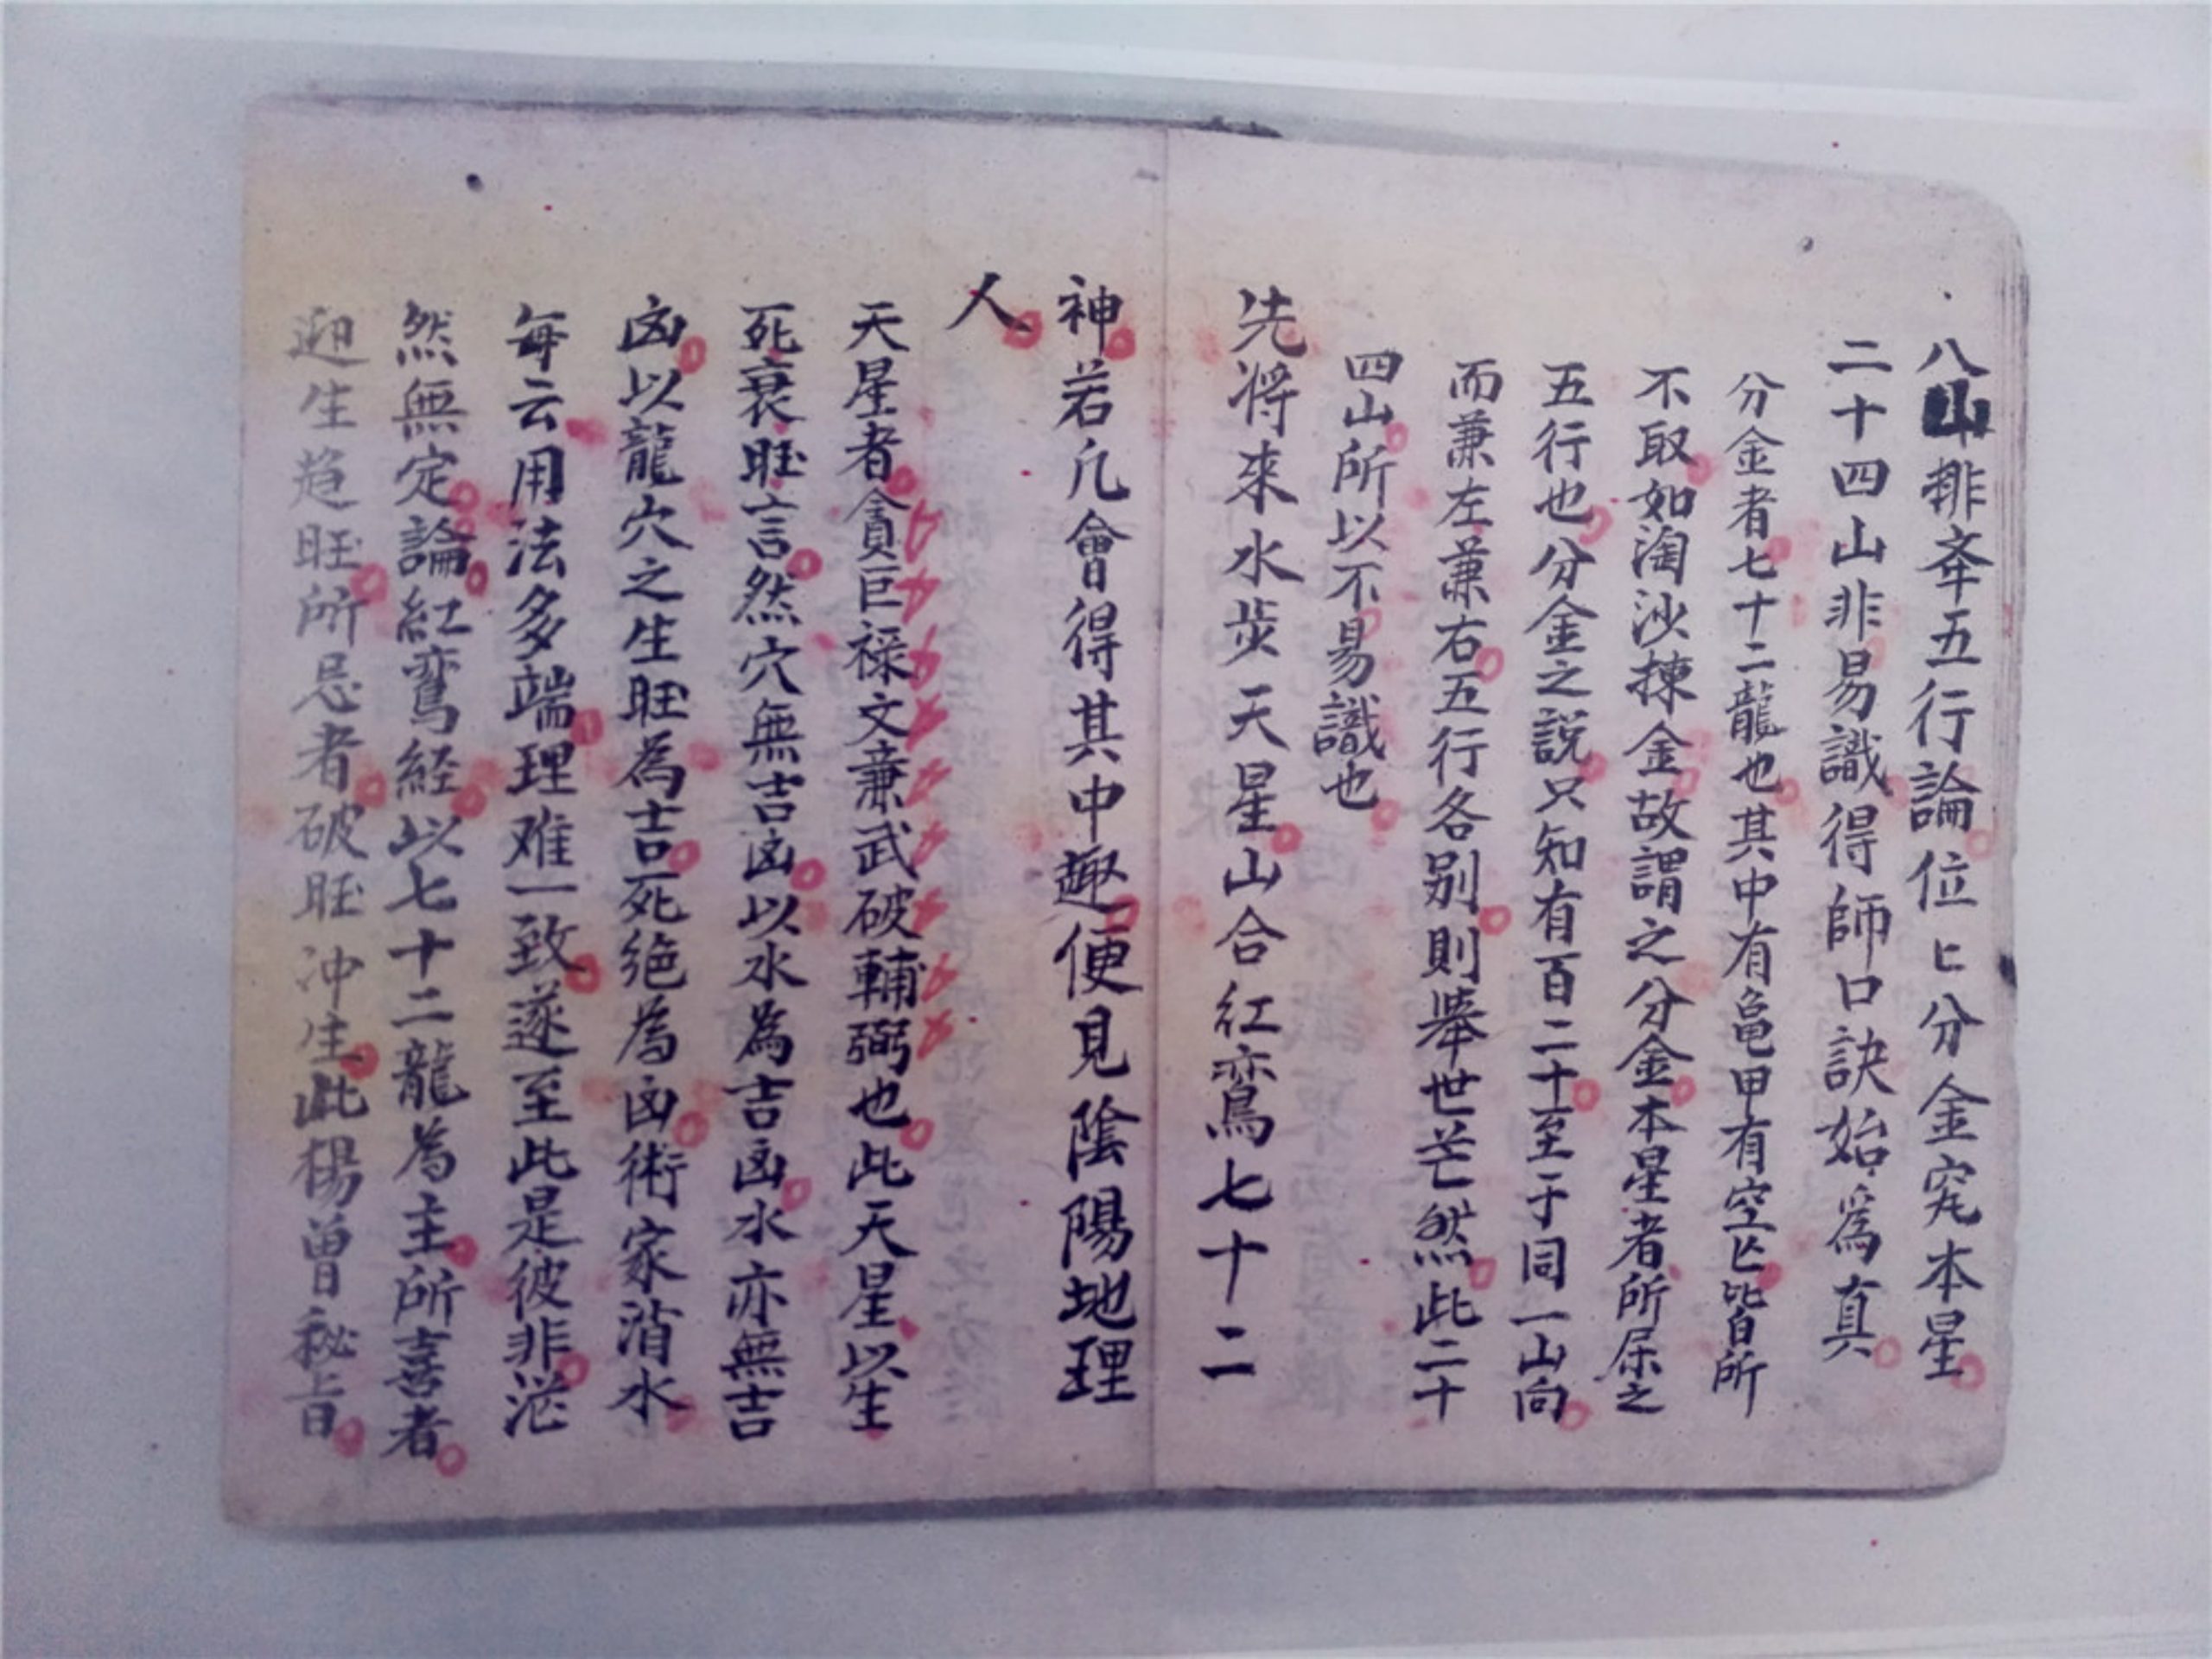 八山排來五行論位匕分金究本星
二十四山非易識得師口訣始為真
分金者七十二龍也其中有龜甲有空亡皆所
不取如淘沙揀金故謂之分金本星者所屬之
五行也分金之説只知有百二十至于同一山向
而兼左兼右五行各别則舉世茫然此二十
四山所以不易識也
先將來水歩天星山合紅鸞七十二
神若凡會得其中趣便見陰陽地理
人
天星者貪巨祿文亷武破輔弼也此天星以生
死衰旺言然穴無吉凶以水為吉凶水亦無吉
凶以龍穴之生旺為吉死絶為凶術家消水
每云用法多端理难一致遂至此是彼非茫
然無定論紅鸞経以七十二龍為主所喜者
迎生趋旺所忌者破旺沖生此楊曽秘旨